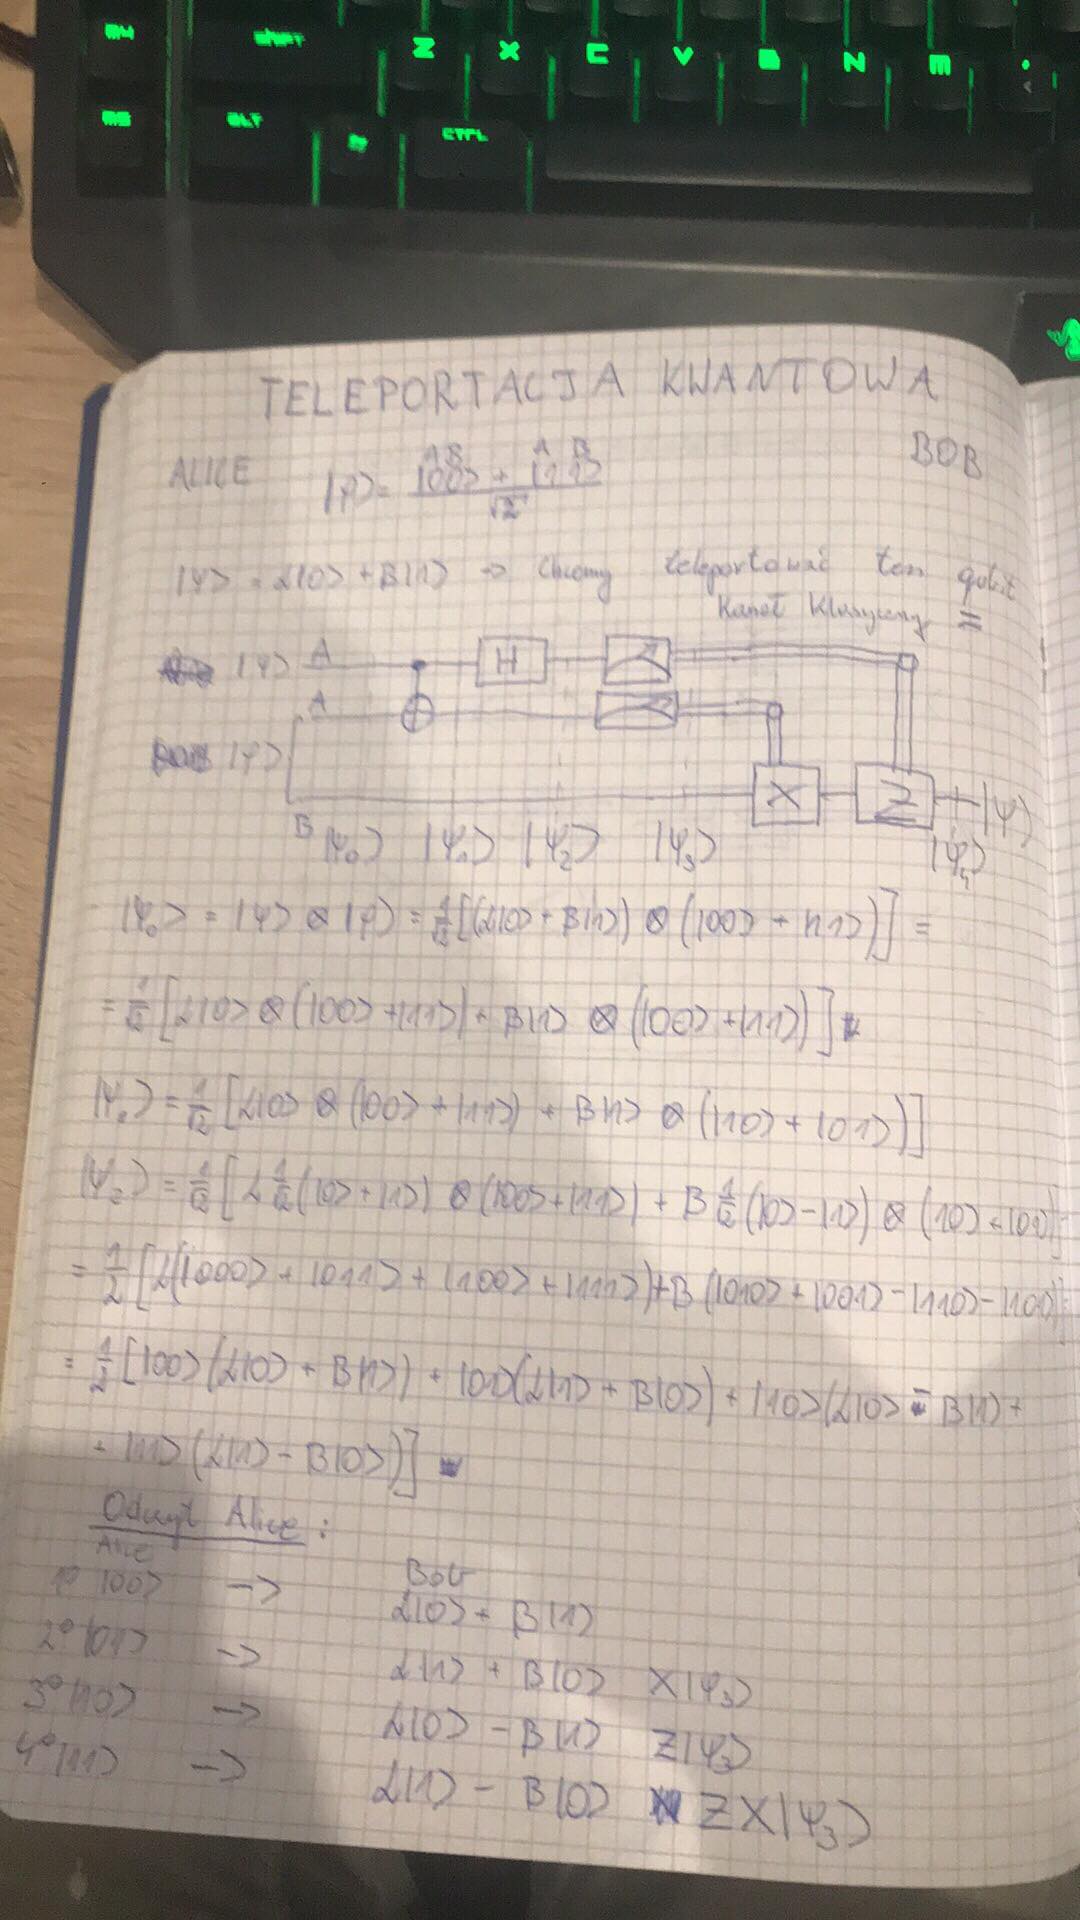 M4 SHIFT Z X C V B N M
M5 ALT CTRL
TELEPORTACJA KWANTOWA
ALICE BOB
A B A B
|φ> = |00> + |11>
√2
|ψ> = α|0> + β|1> → Chcemy teleportować ten qubit
Kanał klasyczny =
|ψ> A H
A
|φ>
X Z |ψ>
B |ψ₀> |ψ₁> |ψ₂> |ψ₃> |ψ₄>
|ψ₀> = |ψ> ⊗ |φ> = 1/√2 [(α|0> + β|1>) ⊗ (|00> + |11>)] =
= 1/√2 [α|0> ⊗ (|00> + |11>) + β|1> ⊗ (|00> + |11>)]
|ψ₁> = 1/√2 [α|0> ⊗ (|00> + |11>) + β|1> ⊗ (|10> + |01>)]
|ψ₂> = 1/√2 [α 1/√2 (|0> + |1>) ⊗ (|00> + |11>) + β 1/√2 (|0> - |1>) ⊗ (|10> + |01>)] =
= 1/2 [α(|000> + |011> + |100> + |111>) + β(|010> + |001> - |110> - |101>)] =
= 1/2 [|00>(α|0> + β|1>) + |01>(α|1> + β|0>) + |10>(α|0> - β|1>) +
+ |11>(α|1> - β|0>)]
Odczyt Alice:
Alice Bob
1° |00> → α|0> + β|1>
2° |01> → α|1> + β|0> X|ψ₃>
3° |10> → α|0> - β|1> Z|ψ₃>
4° |11> → α|1> - β|0> ZX|ψ₃>